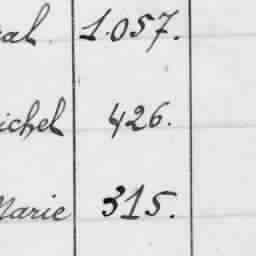 al 1.057.
ichel 426.
Marie 315.